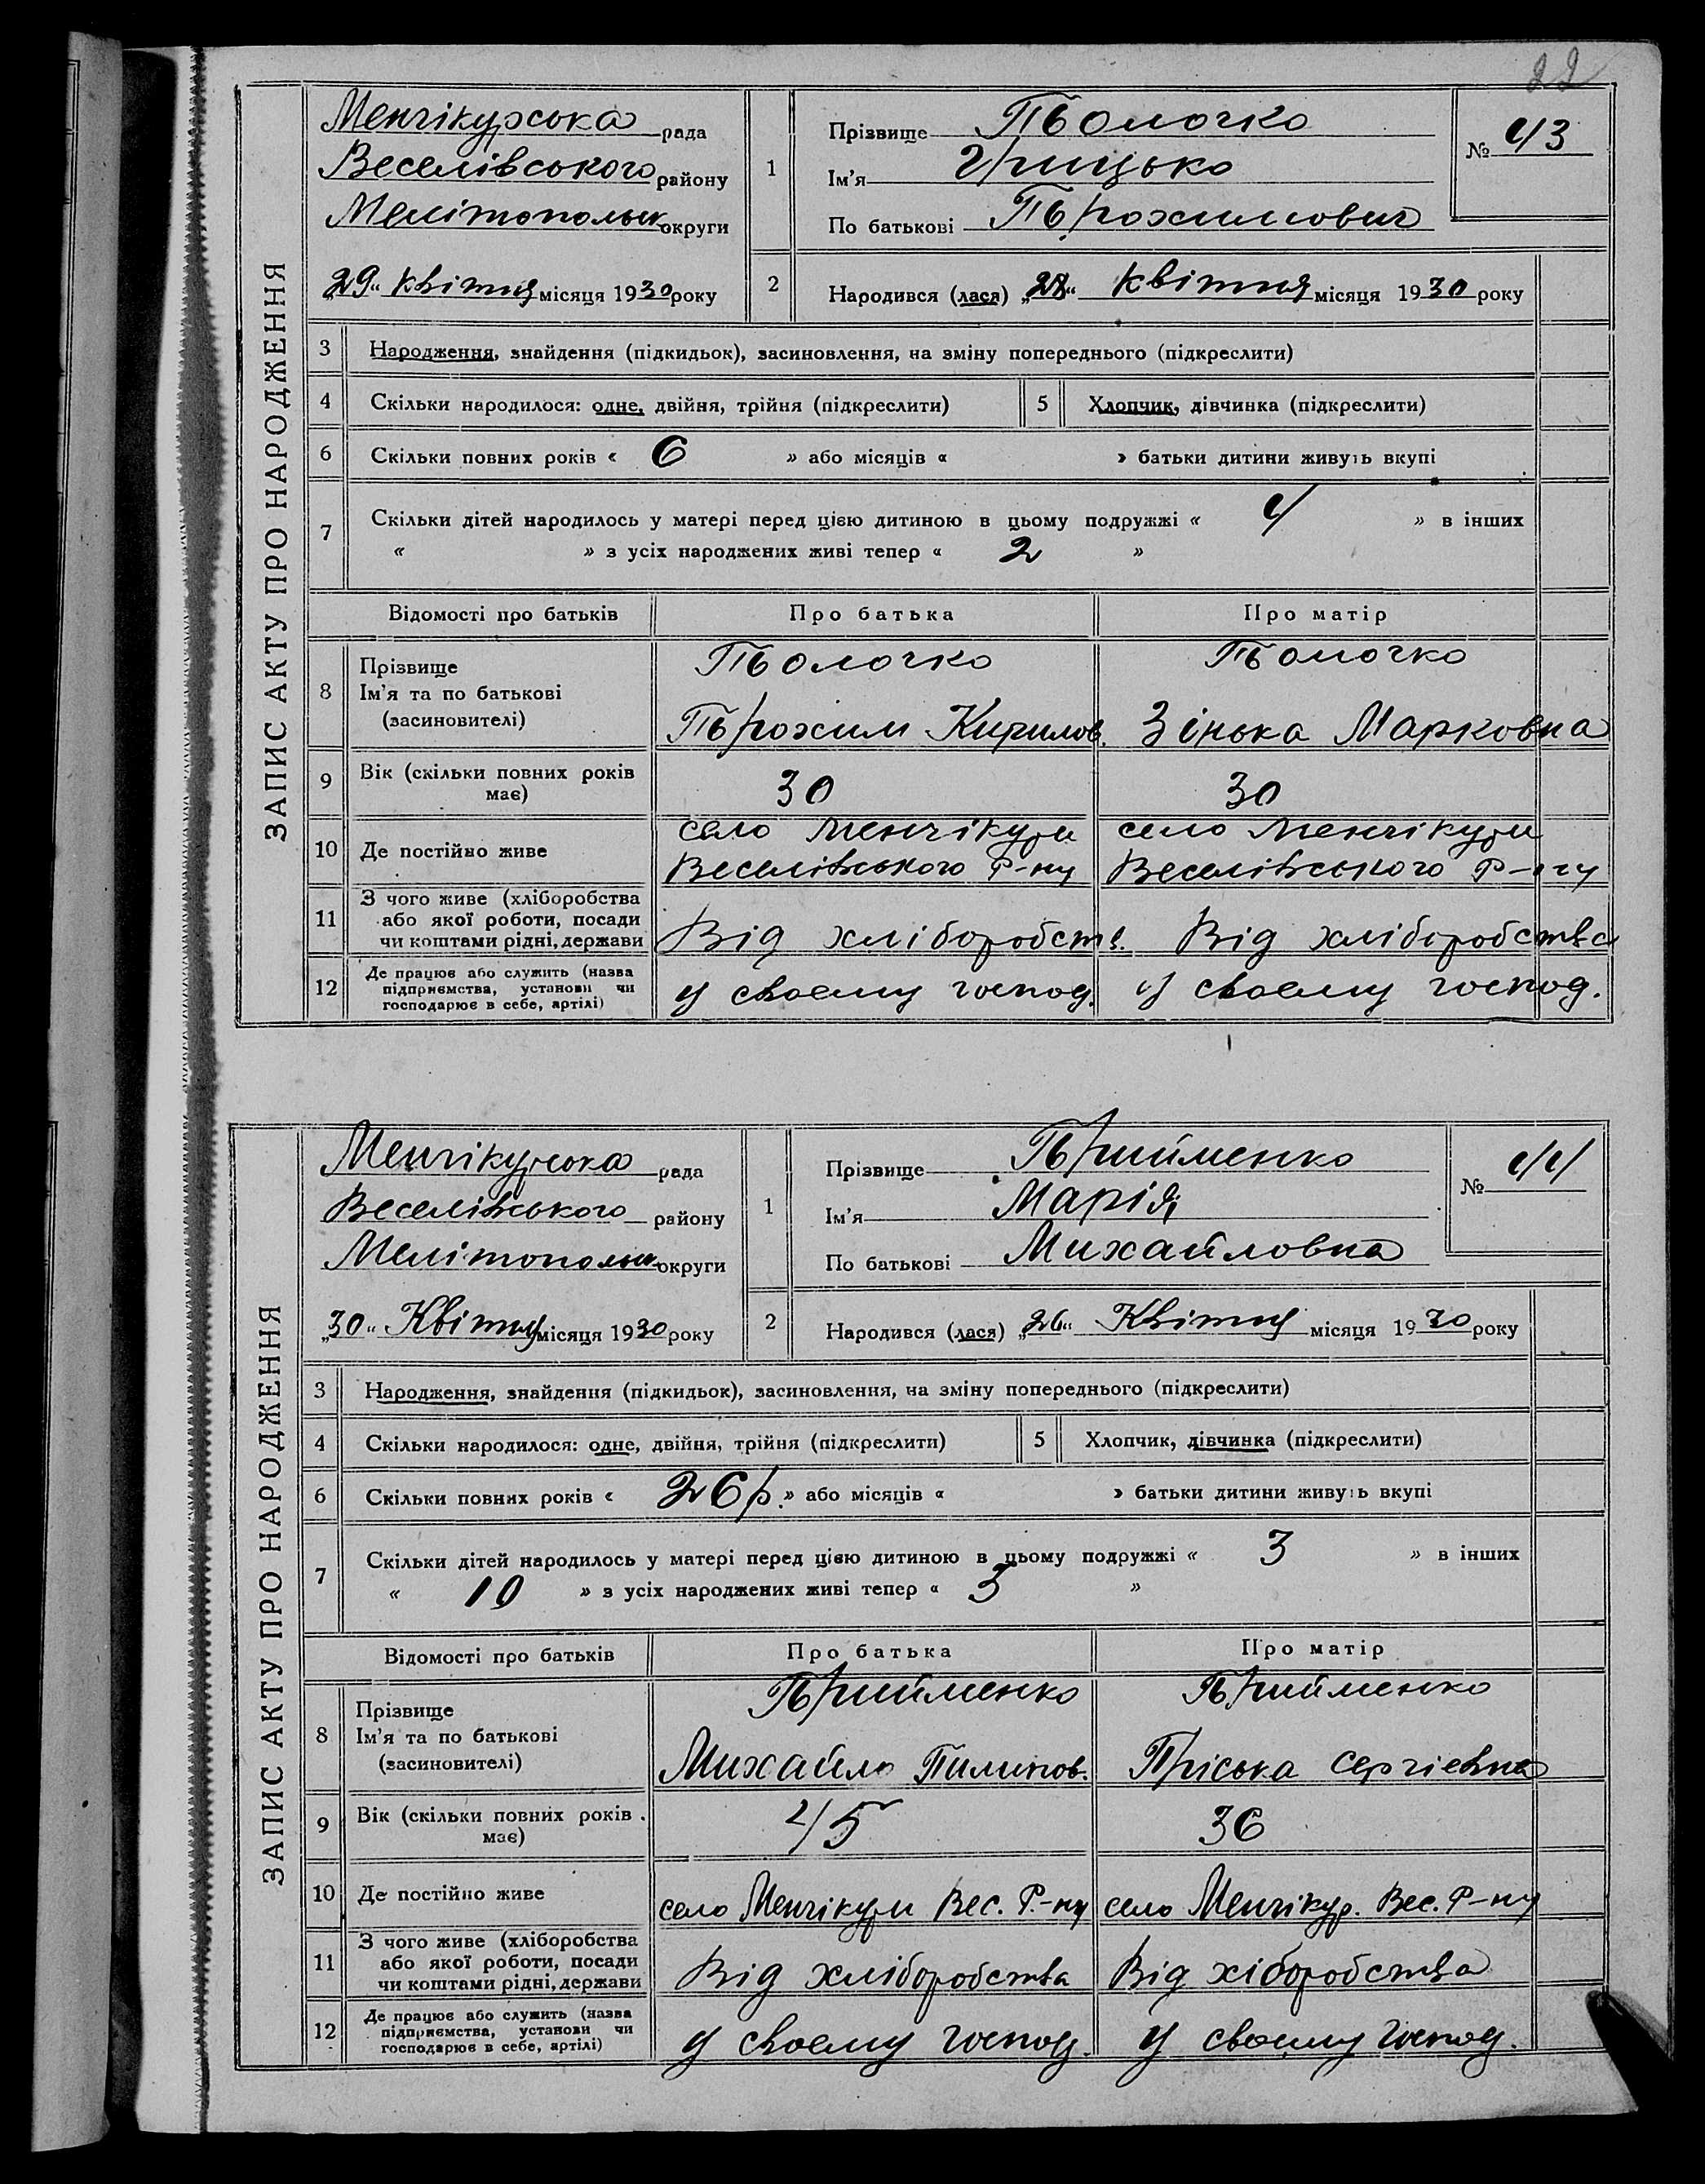 22
ЗАПИС АКТУ ПРО НАРОДЖЕННЯ
Менчікурська рада
Веселівського району
Мелітопольськ округи
„29“ квітня місяця 1930 року
1
Прізвище Толочко
Ім'я Грицько
По батькові Трохимович
№ 43
2
Народився (лася) „28“ квітня місяця 1930 року
3 Народження, знайдення (підкидьок), засиновлення, на зміну попереднього (підкреслити)
4 Скільки народилося: одне, двійня, трійня (підкреслити) 5 Хлопчик, дівчинка (підкреслити)
6 Скільки повних років « 6 » або місяців « » батьки дитини живуть вкупі
7 Скільки дітей народилось у матері перед цією дитиною в цьому подружжі « 4 » в інших
« » з усіх народжених живі тепер « 2 »
Відомості про батьків Про батька Про матір
8 Прізвище Толочко Толочко
Ім'я та по батькові
(засиновителі) Трохим Кирилов. Зінька Марковна
9 Вік (скільки повних років має) 30 30
10 Де постійно живе село Менчікури село Менчікури
Веселівського Р-ну Веселівського Р-ну
11 З чого живе (хліборобства
або якої роботи, посади
чи коштами рідні, держави Від хліборобств. Від хліборобства
12 Де працює або служить (назва
підприємства, установи чи
господарює в себе, артілі) у своему господ. у своему господ.
ЗАПИС АКТУ ПРО НАРОДЖЕННЯ
Менчікурська рада
Веселівського району
Мелітопольськ округи
„30“ Квітня місяця 1930 року
1
Прізвище Прийменко
Ім'я Марія
По батькові Михайловна
№ 44
2
Народився (лася) „26“ Квітня місяця 1930 року
3 Народження, знайдення (підкидьок), засиновлення, на зміну попереднього (підкреслити)
4 Скільки народилося: одне, двійня, трійня (підкреслити) 5 Хлопчик, дівчинка (підкреслити)
6 Скільки повних років « 26 р. » або місяців « » батьки дитини живуть вкупі
7 Скільки дітей народилось у матері перед цією дитиною в цьому подружжі « 3 » в інших
« 10 » з усіх народжених живі тепер « 3 »
Відомості про батьків Про батька Про матір
8 Прізвище Прийменко Прийменко
Ім'я та по батькові
(засиновителі) Михайло Пилипов. Пріська Сергіевна
9 Вік (скільки повних років має) 45 36
10 Де постійно живе село Менчікури Вес. Р-ну село Менчікур. Вес. Р-ну
11 З чого живе (хліборобства
або якої роботи, посади
чи коштами рідні, держави Від хліборобства Від хіборобства
12 Де працює або служить (назва
підприємства, установи чи
господарює в себе, артілі) у своему господ. у своему господ.